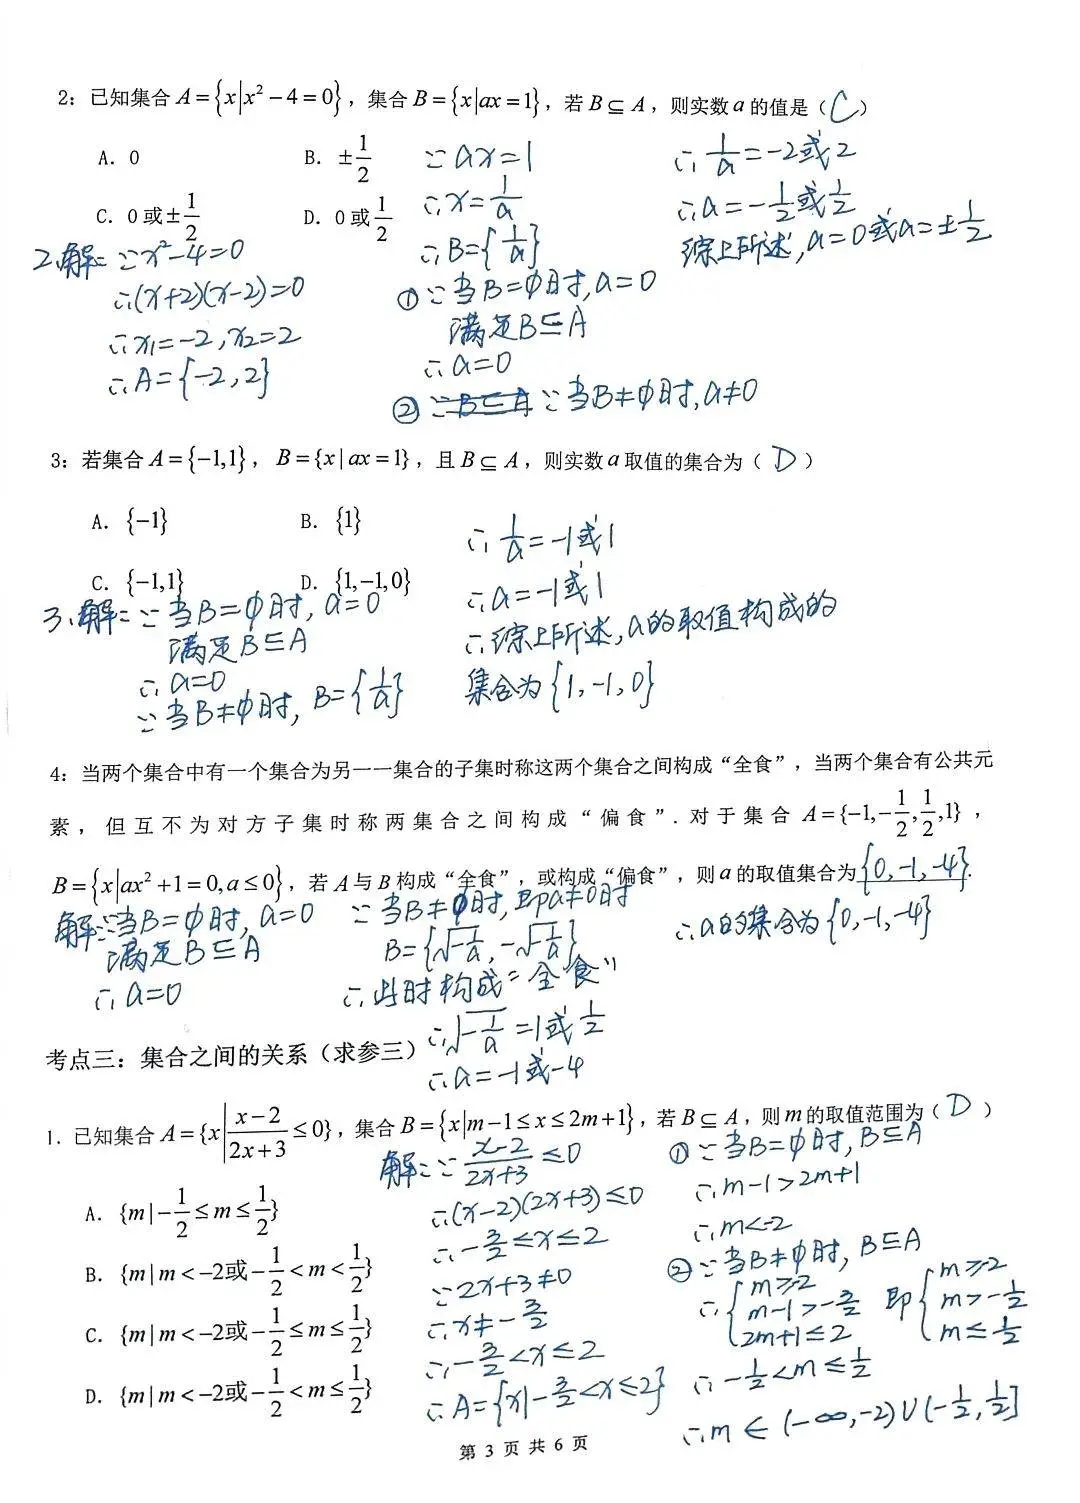 2：已知集合 A={x|x²-4=0}，集合 B={x|ax=1}，若 B⊆A，则实数 a 的值是（C）
A．0
B．±1/2
∵ax=1
∴1/a=-2或2
C．0或±1/2
D．0或1/2
∴x=1/a
∴a=-1/2或1/2
∴B={1/a}
综上所述，a=0或a=±1/2
2、解：∵x²-4=0
∴(x+2)(x-2)=0
∴x₁=-2，x₂=2
∴A={-2，2}
①∵当B=φ时，a=0
满足B⊆A
∴a=0
②∵B⊆A ∵当B≠φ时，a≠0
3：若集合 A={-1,1}，B={x|ax=1}，且 B⊆A，则实数 a 取值的集合为（D）
A．{-1}
B．{1}
C．{-1,1}
D．{1,-1,0}
3、解：∵当B=φ时，a=0
满足B⊆A
∴a=0
∵当B≠φ时，B={1/a}
∴1/a=-1或1
∴a=-1或1
∴综上所述，a的取值构成的
集合为{1，-1，0}
4：当两个集合中有一个集合为另一一集合的子集时称这两个集合之间构成“全食”，当两个集合有公共元
素，但互不为对方子集时称两集合之间构成“偏食”．对于集合 A={-1,-1/2,1/2,1}，
B={x|ax²+1=0,a≤0}，若 A与B构成“全食”，或构成“偏食”，则 a 的取值集合为{0，-1，-4}.
解：∵当B=φ时，a=0
满足B⊆A
∴a=0
∵当B≠φ时，即a≠0时
B={√-1/a，-√-1/a}
∴此时构成“全食”
∴√-1/a=1或1/2
∴a=-1或-4
∴a的集合为{0，-1，-4}
考点三：集合之间的关系（求参三）
1．已知集合 A={x|x-2/2x+3≤0}，集合 B={x|m-1≤x≤2m+1}，若 B⊆A，则 m 的取值范围为（D）
A．{m|-1/2≤m≤1/2}
B．{m|m<-2或-1/2<m<1/2}
C．{m|m<-2或-1/2≤m≤1/2}
D．{m|m<-2或-1/2<m≤1/2}
解：∵x-2/2x+3≤0
∴(x-2)(2x+3)≤0
∴-3/2≤x≤2
∵2x+3≠0
∴x≠-3/2
∴-3/2<x≤2
∴A={x|-3/2<x≤2}
①∵当B=φ时，B⊆A
∴m-1>2m+1
∴m<-2
②∵当B≠φ时，B⊆A
∴{m≥-2 即{m≥-2
m-1>-3/2 m>-1/2
2m+1≤2 m≤1/2
∴-1/2<m≤1/2
∴m∈(-∞，-2)∪(-1/2，1/2]
第 3 页 共 6 页